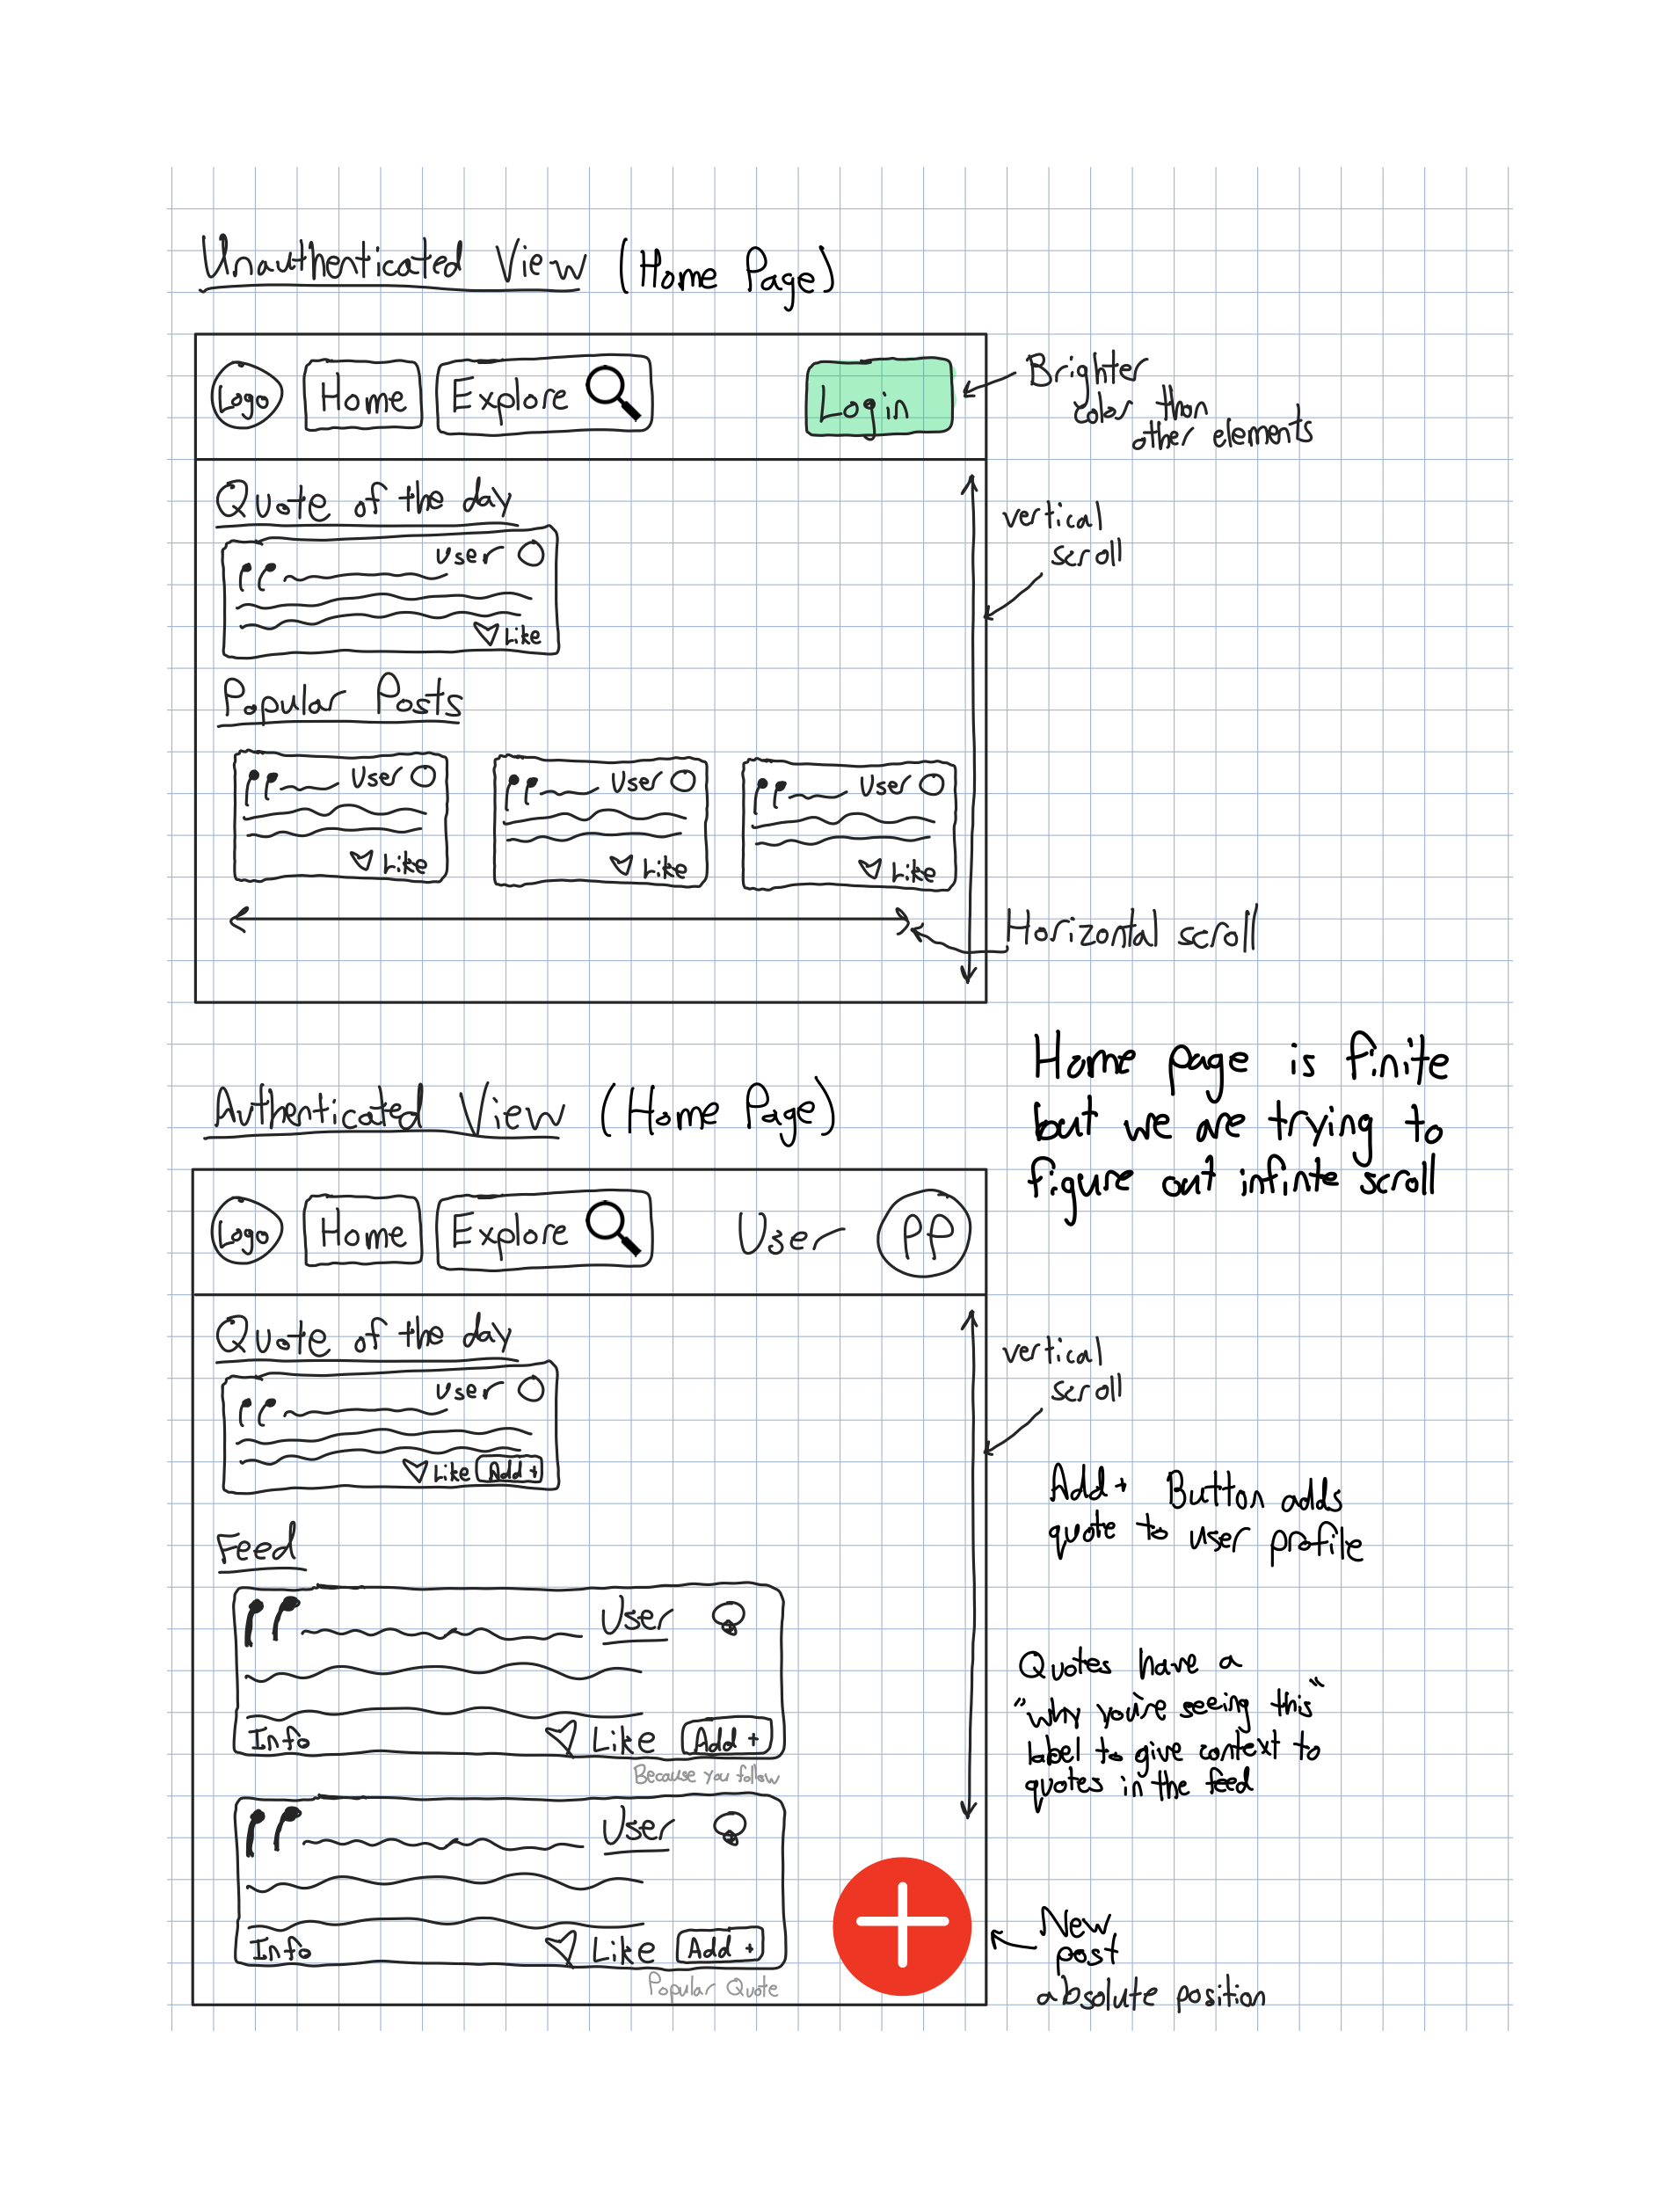 Unauthenticated View (Home Page)
Logo Home Explore Login
Brighter
color than
other elements
Quote of the day
User
Like
vertical
scroll
Popular Posts
User
Like
User
Like
User
Like
Horizontal scroll
Home page is finite
but we are trying to
figure out infinte scroll
Authenticated View (Home Page)
Logo Home Explore User PP
Quote of the day
User
Like Add +
vertical
scroll
Add+ Button adds
quote to user profile
Feed
User
Info Like Add +
Because you follow
Quotes have a
"why you're seeing this"
label to give context to
quotes in the feed
User
Info Like Add +
Popular Quote
New
post
absolute position